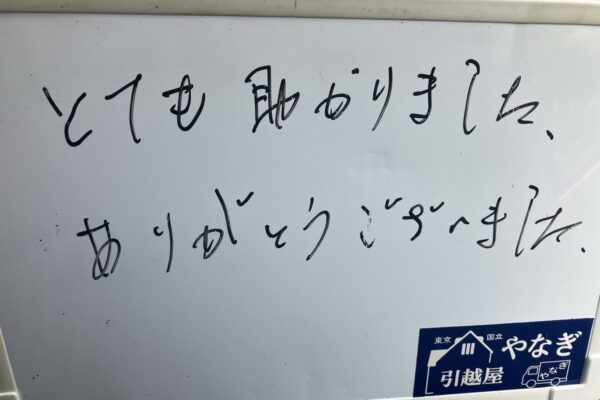 とても助かりました、
ありがとうございました、
東京 国立
やなぎ
引越屋
やなぎ